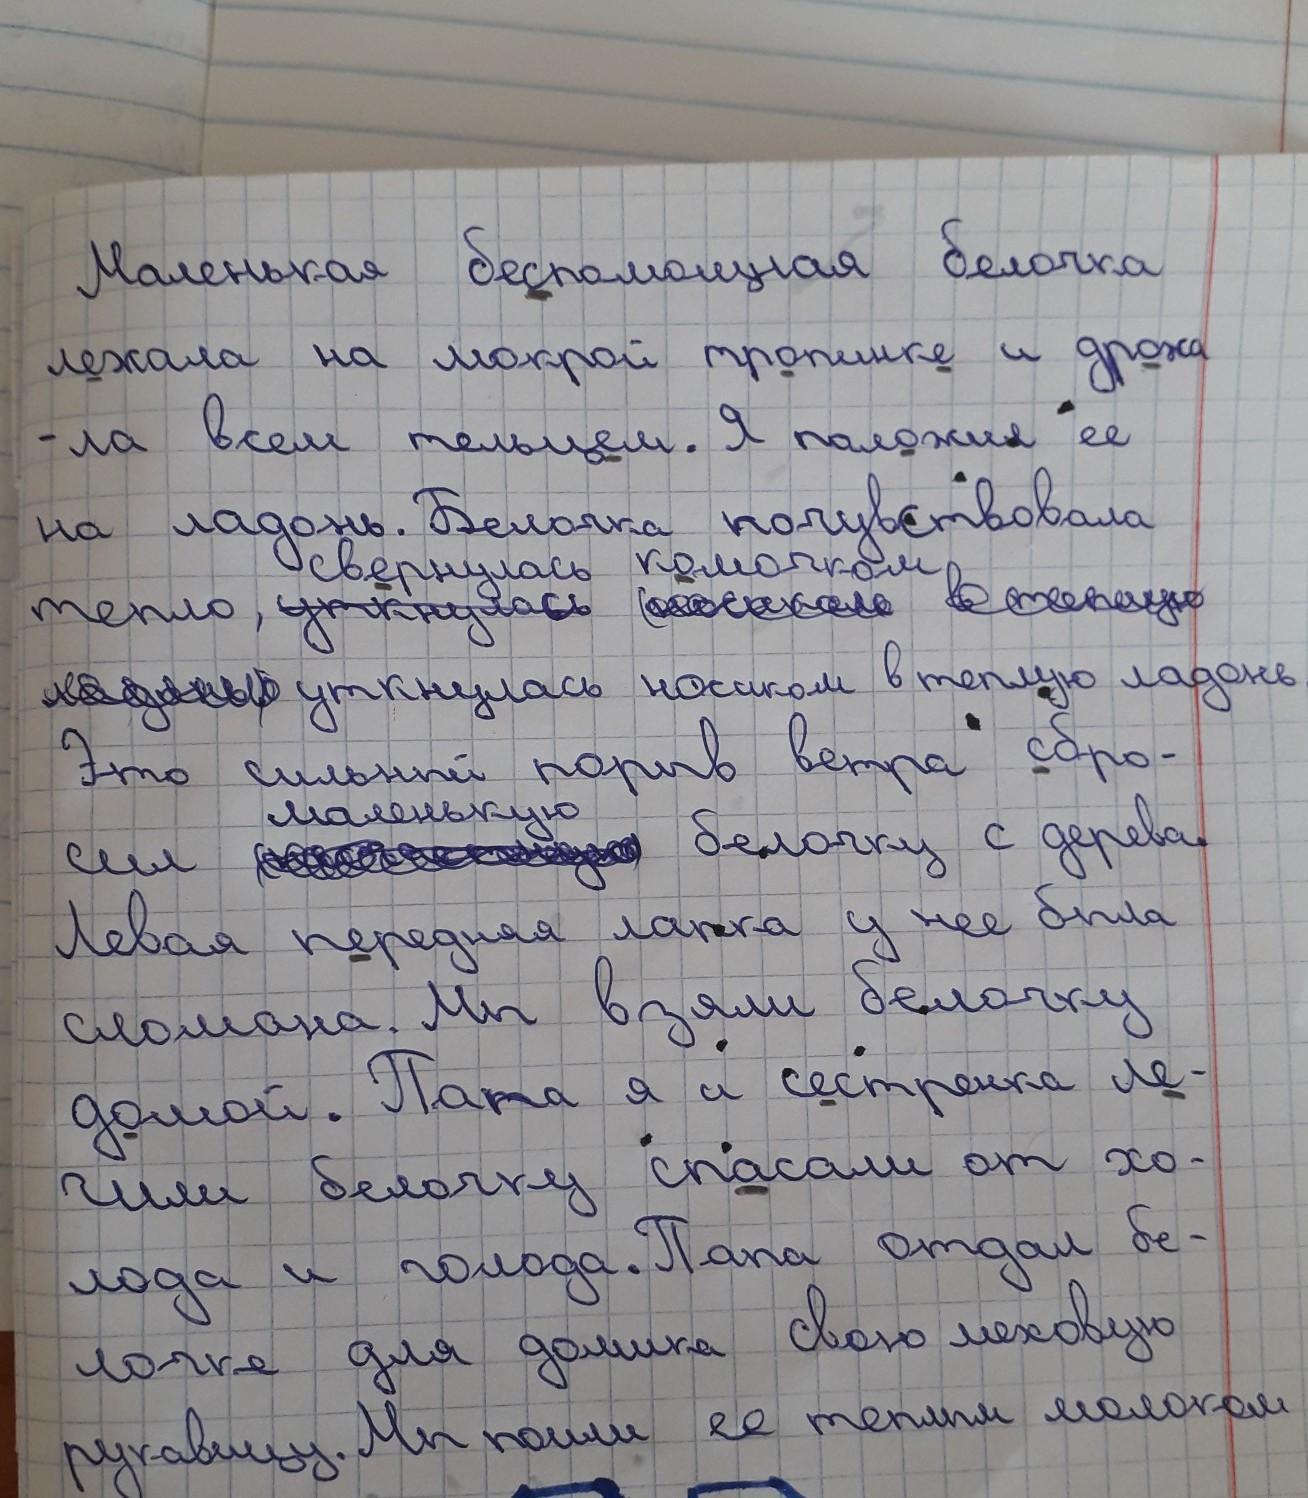 Маленькая беспомощная белочка
лежала на мокрой тропинке и дрожа
-ла всем тельцем. Я положил ее
на ладонь. Белочка почувствовала
свернулась комочком
тепло, уткнулась
уткнулась носиком в теплую ладонь.
Это сильный порыв ветра сбро-
маленькую
сил белочку с дерева.
Левая передняя лапка у нее была
сломана. Мы взяли белочку
домой. Папа я и сестренка ле-
чили белочку спасали от хо-
лода и голода. Папа отдал бе-
лочке для домика свою меховую
рукавицу. Мы поили ее теплым молоком